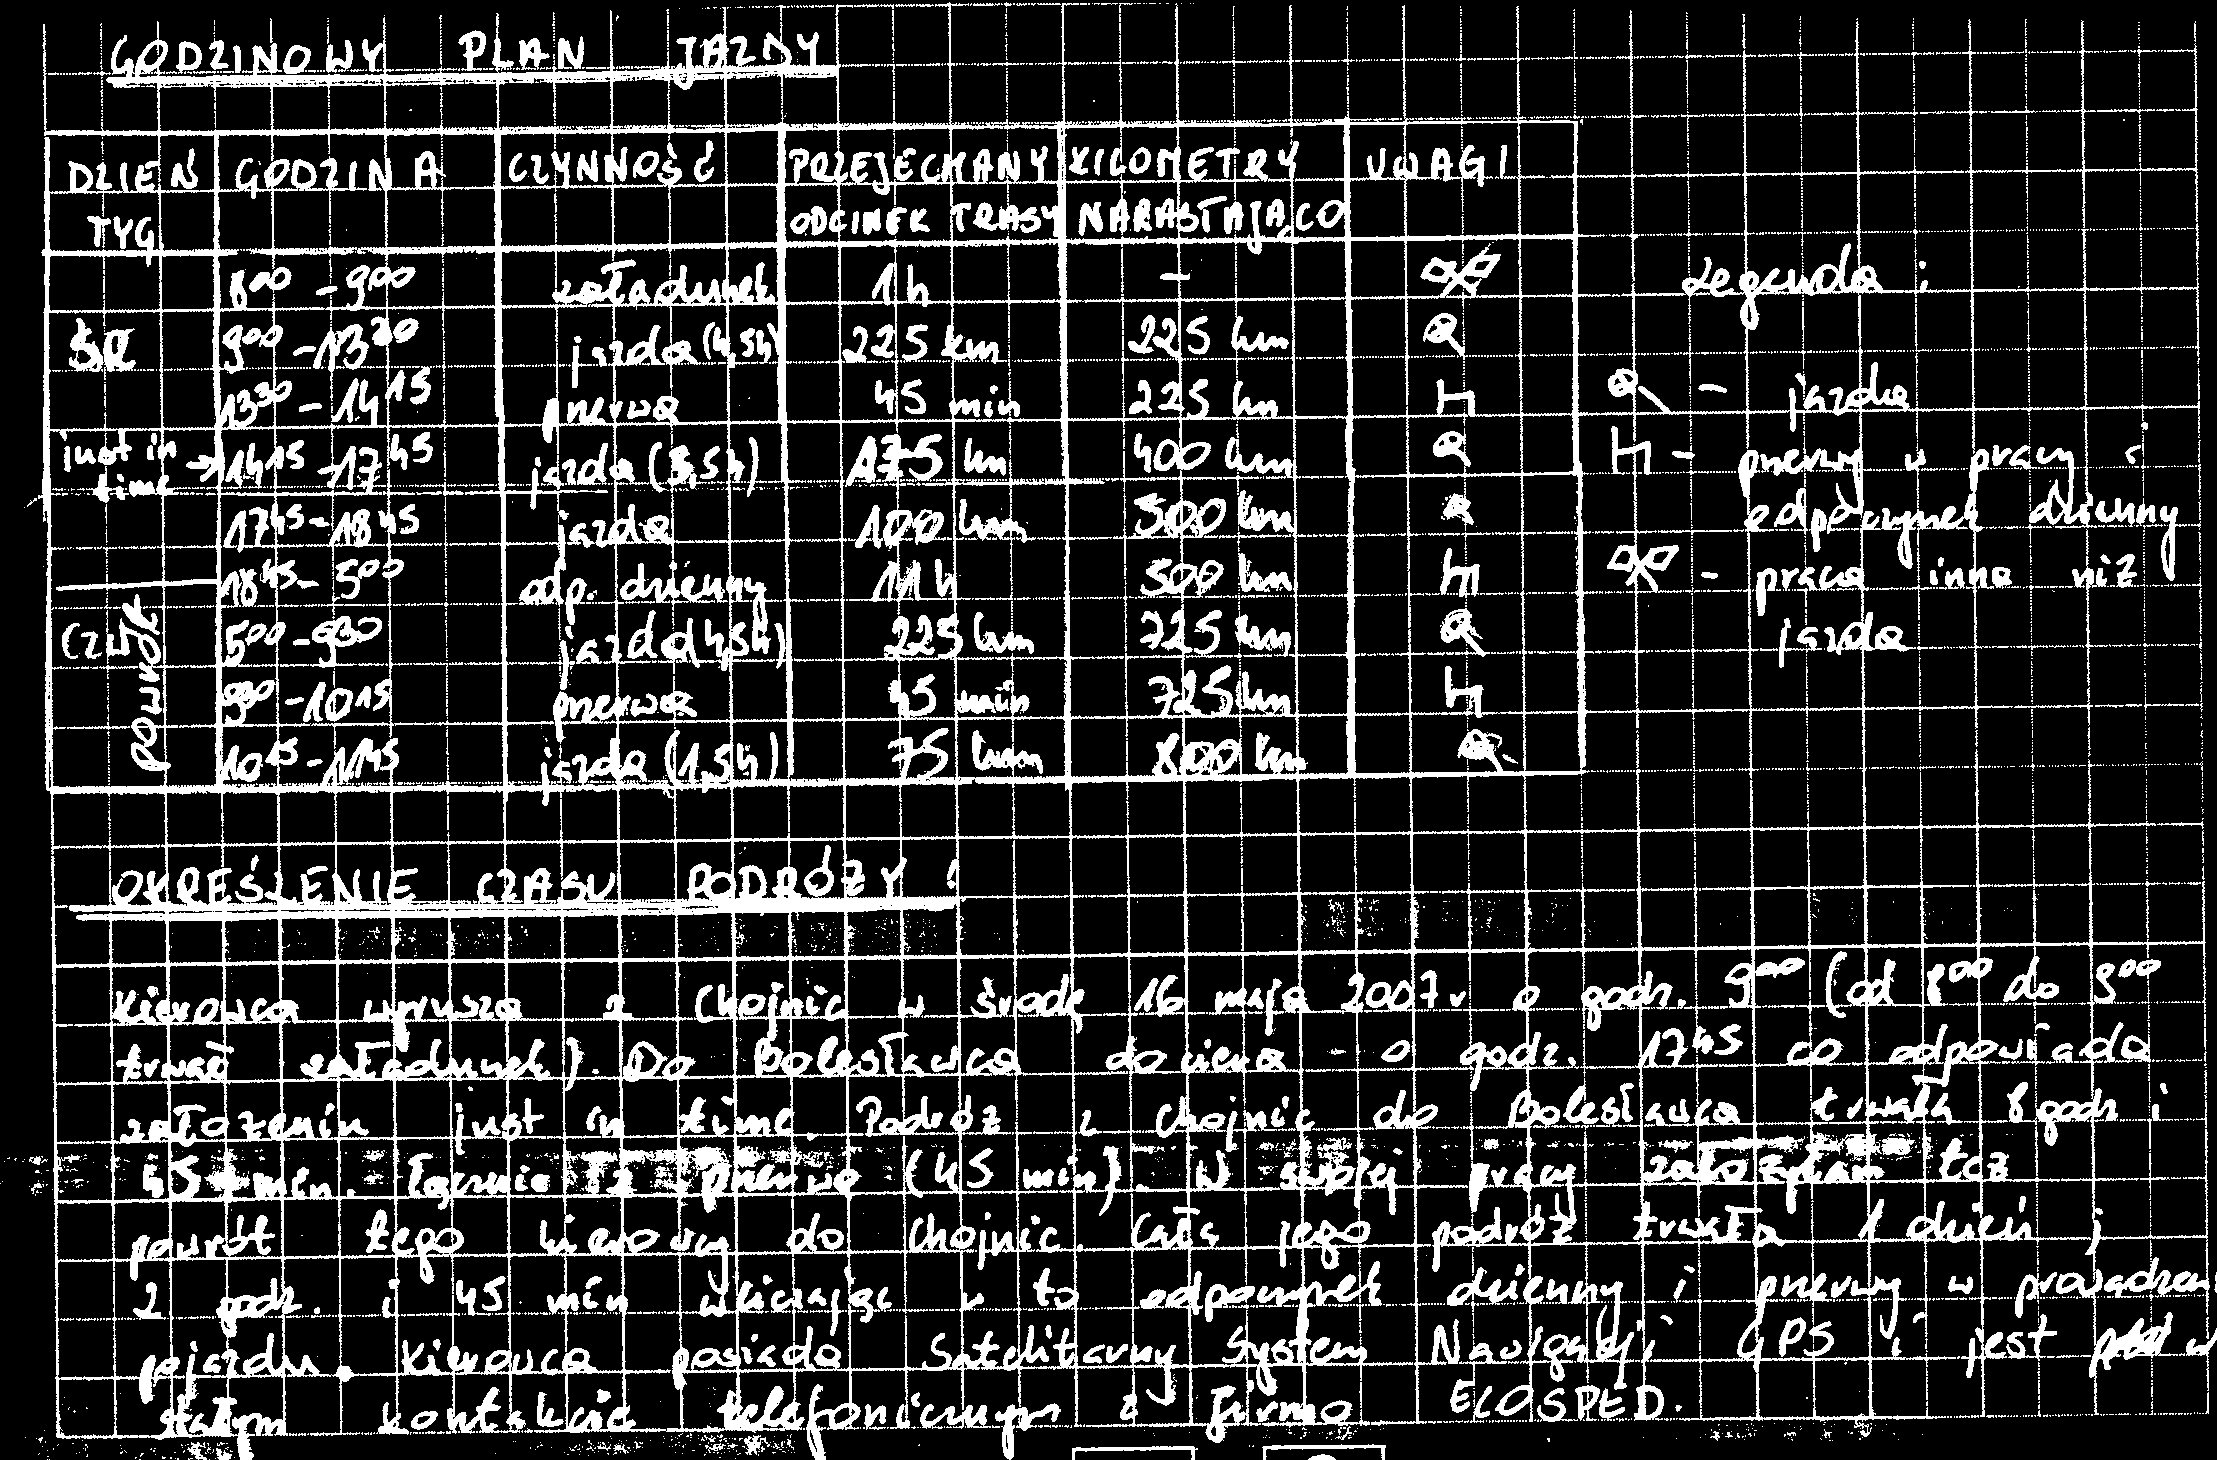 GODZINOWY PLAN JAZDY
DZIEŃ TYG. GODZINA CZYNNOŚĆ PRZEJECHANY ODCINEK TRASY KILOMETRY NARASTAJĄCO UWAGI
8⁰⁰ - 9⁰⁰ załadunek 1h -
ŚR 9⁰⁰ - 13³⁰ jazda (4,5h) 225 km 225 km
13³⁰ - 14¹⁵ przerwa 45 min 225 km
just in time → 14¹⁵ - 17⁴⁵ jazda (3,5h) 175 km 400 km
17⁴⁵ - 18⁴⁵ jazda 100 km 500 km
18⁴⁵ - 5⁰⁰ odp. dzienny 11h 500 km
CZW powrót 5⁰⁰ - 9³⁰ jazda (4,5h) 225 km 725 km
9³⁰ - 10¹⁵ przerwa 45 min 725 km
10¹⁵ - 11⁴⁵ jazda (1,5h) 75 km 800 km
Legenda :
- jazda
- przerwy w pracy i
odpoczynek dzienny
- praca inna niż
jazda
OKREŚLENIE CZASU PODRÓŻY :
Kierowca wyrusza z Chojnic w środę 16 maja 2007r o godz. 9⁰⁰ (od 8⁰⁰ do 9⁰⁰
trwał załadunek). Do Bolesławca dociera o godz. 17⁴⁵ co odpowiada
założeniu just in time. Podróż z Chojnic do Bolesławca trwała 8 godz i
45 min. łącznie z przerwą (45 min). W swojej pracy założyłam też
powrót tego kierowcy do Chojnic. Cała jego podróż trwała 1 dzień i
2 godz. i 45 min wliczając w to odpoczynek dzienny i przerwy w prowadzeni
pojazdu. Kierowca posiada Satelitarny System Nawigacji GPS i jest w
stałym kontakcie telefonicznym z firmą ECOSPED.